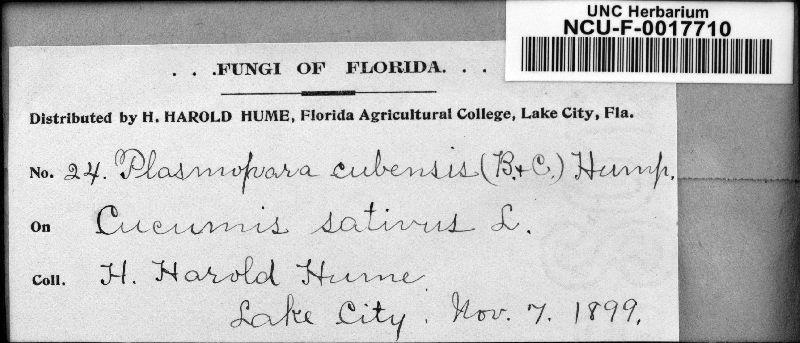 UNC Herbarium
NCU-F-0017710
. . .FUNGI OF FLORIDA. . .
Distributed by H. HAROLD HUME, Florida Agricultural College, Lake City, Fla.
No. 24. Plasmopara cubensis (B.+C.) Hump.
On Cucumis sativus L.
Coll. H. Harold Hume.
Lake City. Nov. 7. 1899.